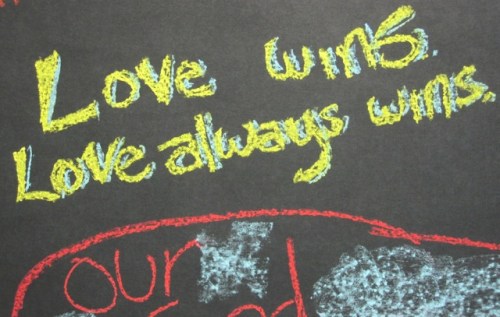 Love wins.
Love always wins.
our